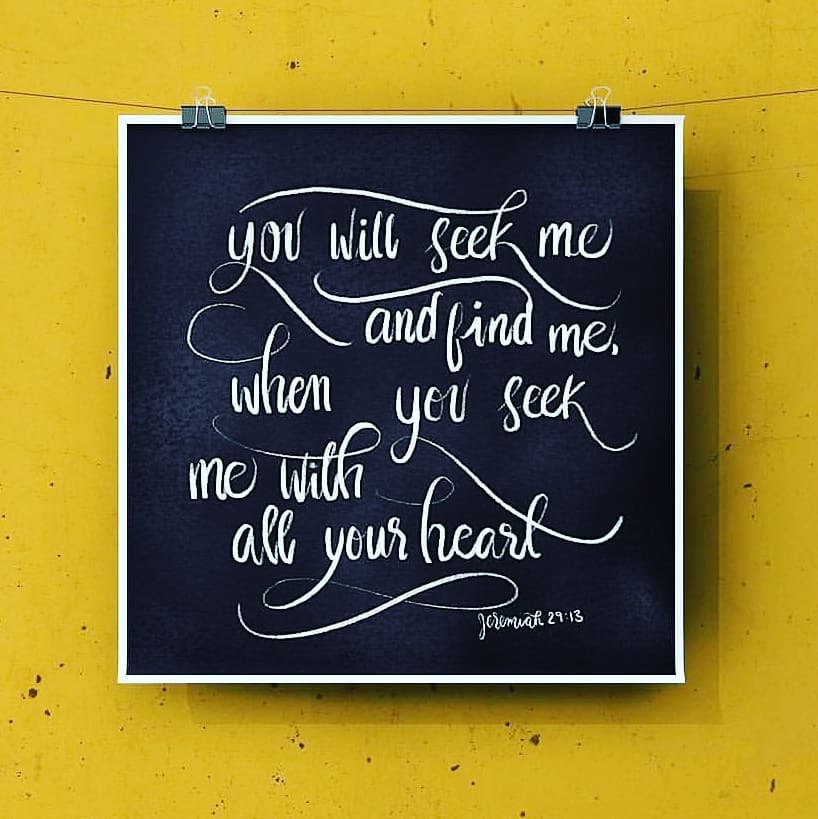 you will seek me
and find me,
when you seek
me with
all your heart
Jeremiah 29:13